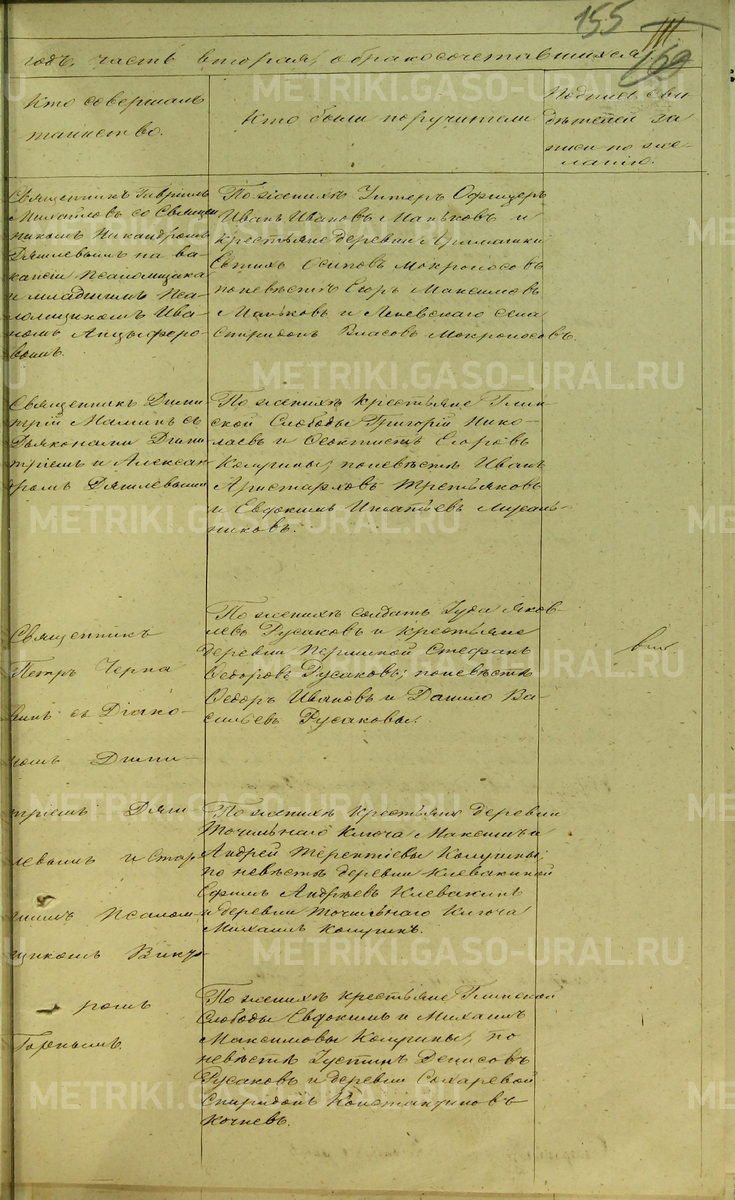 155
годъ, часть вторая, о бракосочетавшихся
Кто совершалъ
таинство.
Кто были поручители
Подпись сви
дѣтелей за
писи по же-
ланію.
Священникъ Гавріилъ
Михайловъ со Священ
никомъ Никандромъ
Дягилевымъ на ва
кансіи Псаломщика
и младшимъ Пса-
ломщикомъ Ива
номъ Анцыферо
вымъ.
По женихѣ Унтеръ Офицеръ
Иванъ Ивановъ Маньковъ и
крестьяне деревни Арамашки
Осиповъ Мокроносовъ
по невѣстѣ Егоръ Максимовъ
Маньковъ и Леневскаго села
Спиридонъ Власовъ Мокроносовъ.
Священникъ Дими
трій Маминъ съ
Дьяконами Дими
тріемъ и Алексан
дромъ Дягилевыми
По женихѣ крестьяне Глин
ской Слободы Григорій Нико-
лаевъ и Ѳеоктистъ Егоровъ
Колугины; по невѣстѣ Иванъ
Аристарховъ Третьяковъ
и Евдокимъ Игнатіевъ
никовъ.
Священникъ
Петръ Черпа
съ Діако-
номъ Дими-
тріемъ Дяги
левымъ и Стар
шимъ Псалом-
щикомъ Викт
ромъ
Горнымъ.
По женихѣ солдатъ Іуда Яков-
левъ Русаковъ и крестьяне
деревни Стефанъ
Ѳедоровъ Русаковъ; по невѣстѣ
Ѳедоръ Ивановъ и Данило Ва-
сильевъ Русаковы.
По женихѣ крестьяне деревни
Точильнаго Ключа Максимъ и
Андрей Терентіевы Колугины,
по невѣстѣ деревни Клевакиной
Ефимъ Андреевъ Клевакинъ
и деревни Точильнаго Ключа
Михаилъ Колугинъ.
По женихѣ крестьяне Глинской
Слободы Евдокимъ и Михаилъ
Максимовы Колугины, по
невѣстѣ Іустинъ Денисовъ
Русаковъ и деревни Сохаревой
Спиридонъ Константиновъ
Кочневъ.
METRIKI.GASO-URAL.RU
METRIKI.GASO-URAL.RU
METRIKI.GASO-URAL.RU
METRIKI.GASO-URAL.RU
METRIKI.GASO-URAL.RU
METRIKI.GASO-URAL.RU
METRIKI.GASO-URAL.RU
METRIKI.GASO-URAL.RU